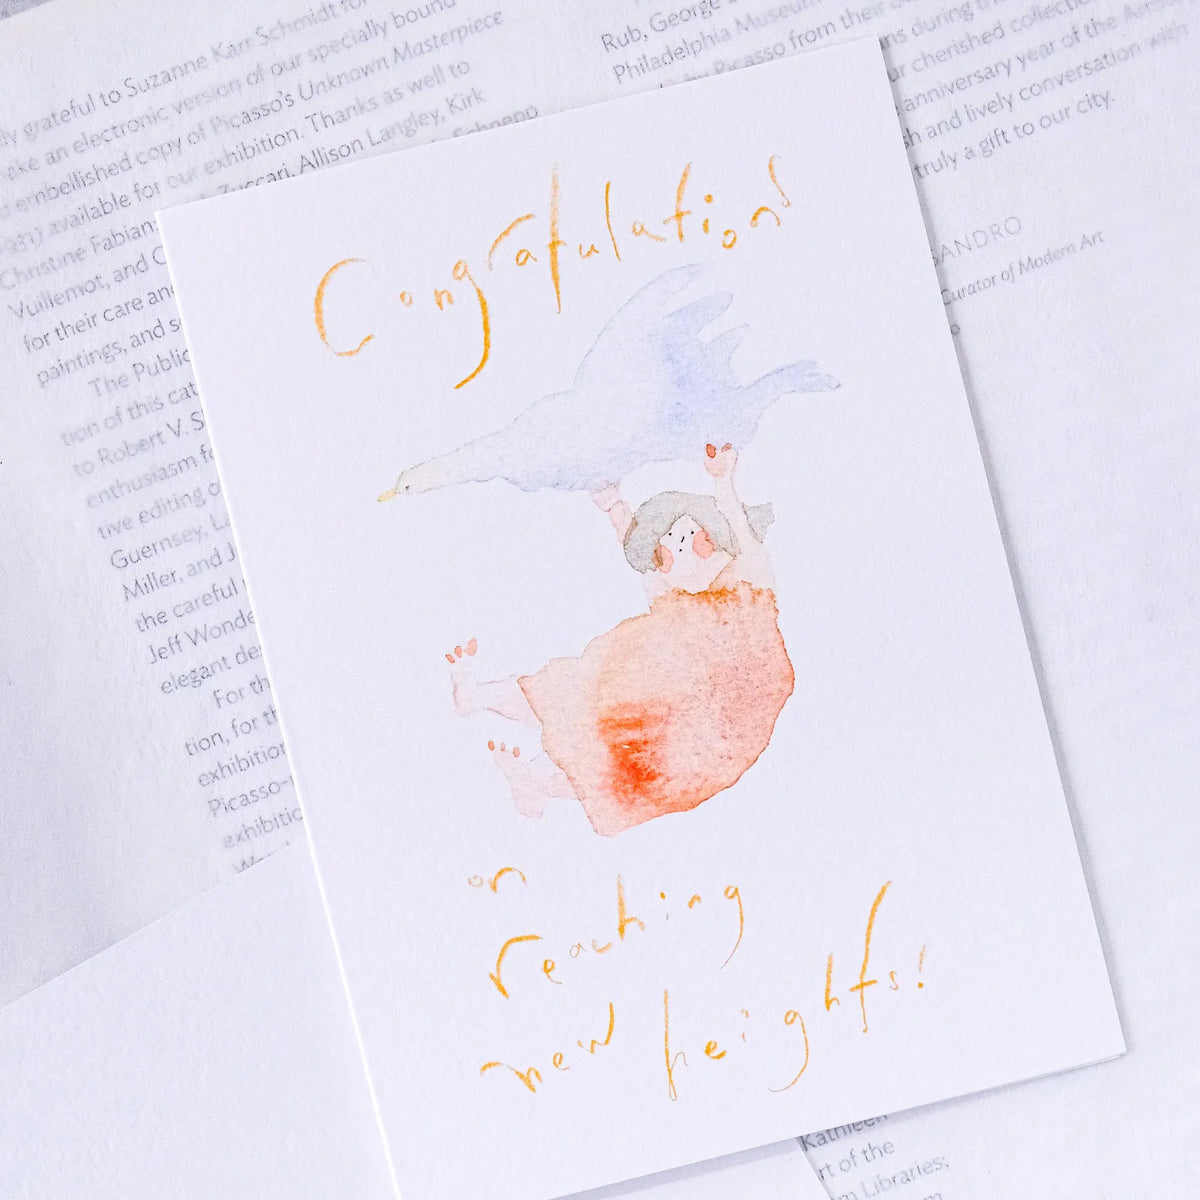 Congratulations
on
reaching
new heights!
ly grateful to Suzanne Karr Schmidt for
make an electronic version of our specially bound
embellished copy of Picasso's Unknown Masterpiece
1931) available for our exhibition. Thanks as well to
Christine Fabian
Zuccari, Allison Langley, Kirk
Vuillemot, and
Schnepp
for their care and
paintings, and
The Public
tion of this cat
to Robert V. S
enthusiasm fo
tive editing o
Guernsey, L
Miller, and J
the careful
Jeff Wonde
elegant de
For th
tion, for th
exhibition
Picasso-
exhibitio
Rub, George
Philadelphia Museum
by Picasso from their
ns during the
r cherished collection
anniversary year of the Armory
h and lively conversation with
truly a gift to our city.
SANDRO
Curator of Modern Art
Kathleen
rt of the
m Libraries;